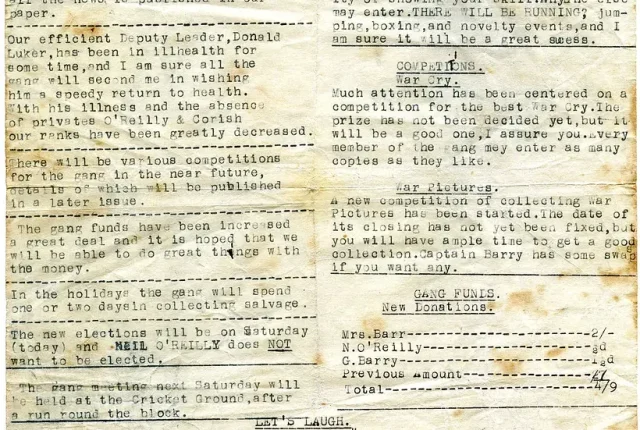 all the news is published in our
paper.
Our efficient Deputy Leader,Donald
Luker,has been in illhealth for
some time,and I am sure all the
gang will second me in wishing
him a speedy return to health.
With his illness and the absence
of privates O'Reilly & Corish
our ranks have been greatly decreased.
There will be various competitions
for the gang in the near future,
details of which will be published
in a later issue.
The gang funds have been increased
a great deal and it is hoped that we
will be able to do great things with
the money.
In the holidays the gang will spend
one or two daysin collecting salvage.
The new elections will be on Saturday
(today) and NEIL O'REILLY does NOT
want to be elected.
The gang meeting next Saturday will
be held at the Cricket Ground,after
a run round the block.
of showing your skill.
may enter.THERE WILL BE RUNNING, jum-
ping,boxing,and novelty events,and I
am sure it will be a great
COMPETIONS.
War Cry.
Much attention has been centered on a
competition for the best War Cry.The
prize has not been decided yet,but it
will be a good one,I assure you.Every
member of the gang mey enter as many
copies as they like.
War Pictures.
A new competition of collecting War
Pictures has been started.The date of
its closing has not yet been fixed,but
you will have ample time to get a good
collection.Captain Barry has some swa
if you want any.
GANG FUNDS.
New Donations.
Mrs.Barr 2/-
N.O'Reilly
G.Barry
Previous Amount
Total 4/9
LET'S LAUGH.